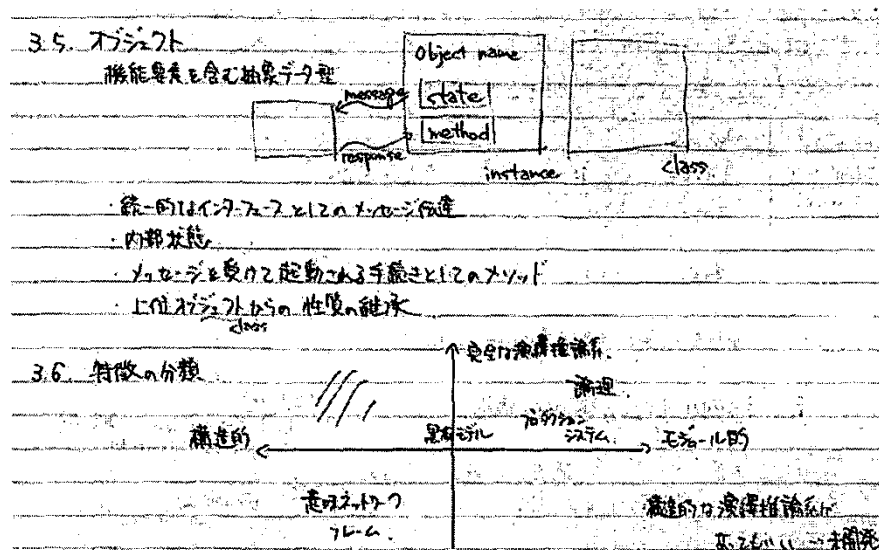 3.5. オブジェクト
機能要素を含む抽象データ型
Object name
message
state
method
response
instance
class
・統一的なインターフェースとしてのメッセージ伝達
・内部状態
・メッセージを受けて起動される手続きとしてのメソッド
・上位オブジェクトからの性質の継承
class
3.6. 特徴の分類
完全な演繹推論系
論理
構造的
黒板モデル
プロダクション
システム
モジュール的
意味ネットワーク
フレーム
構造的な演繹推論系が
あってもいい 未開発